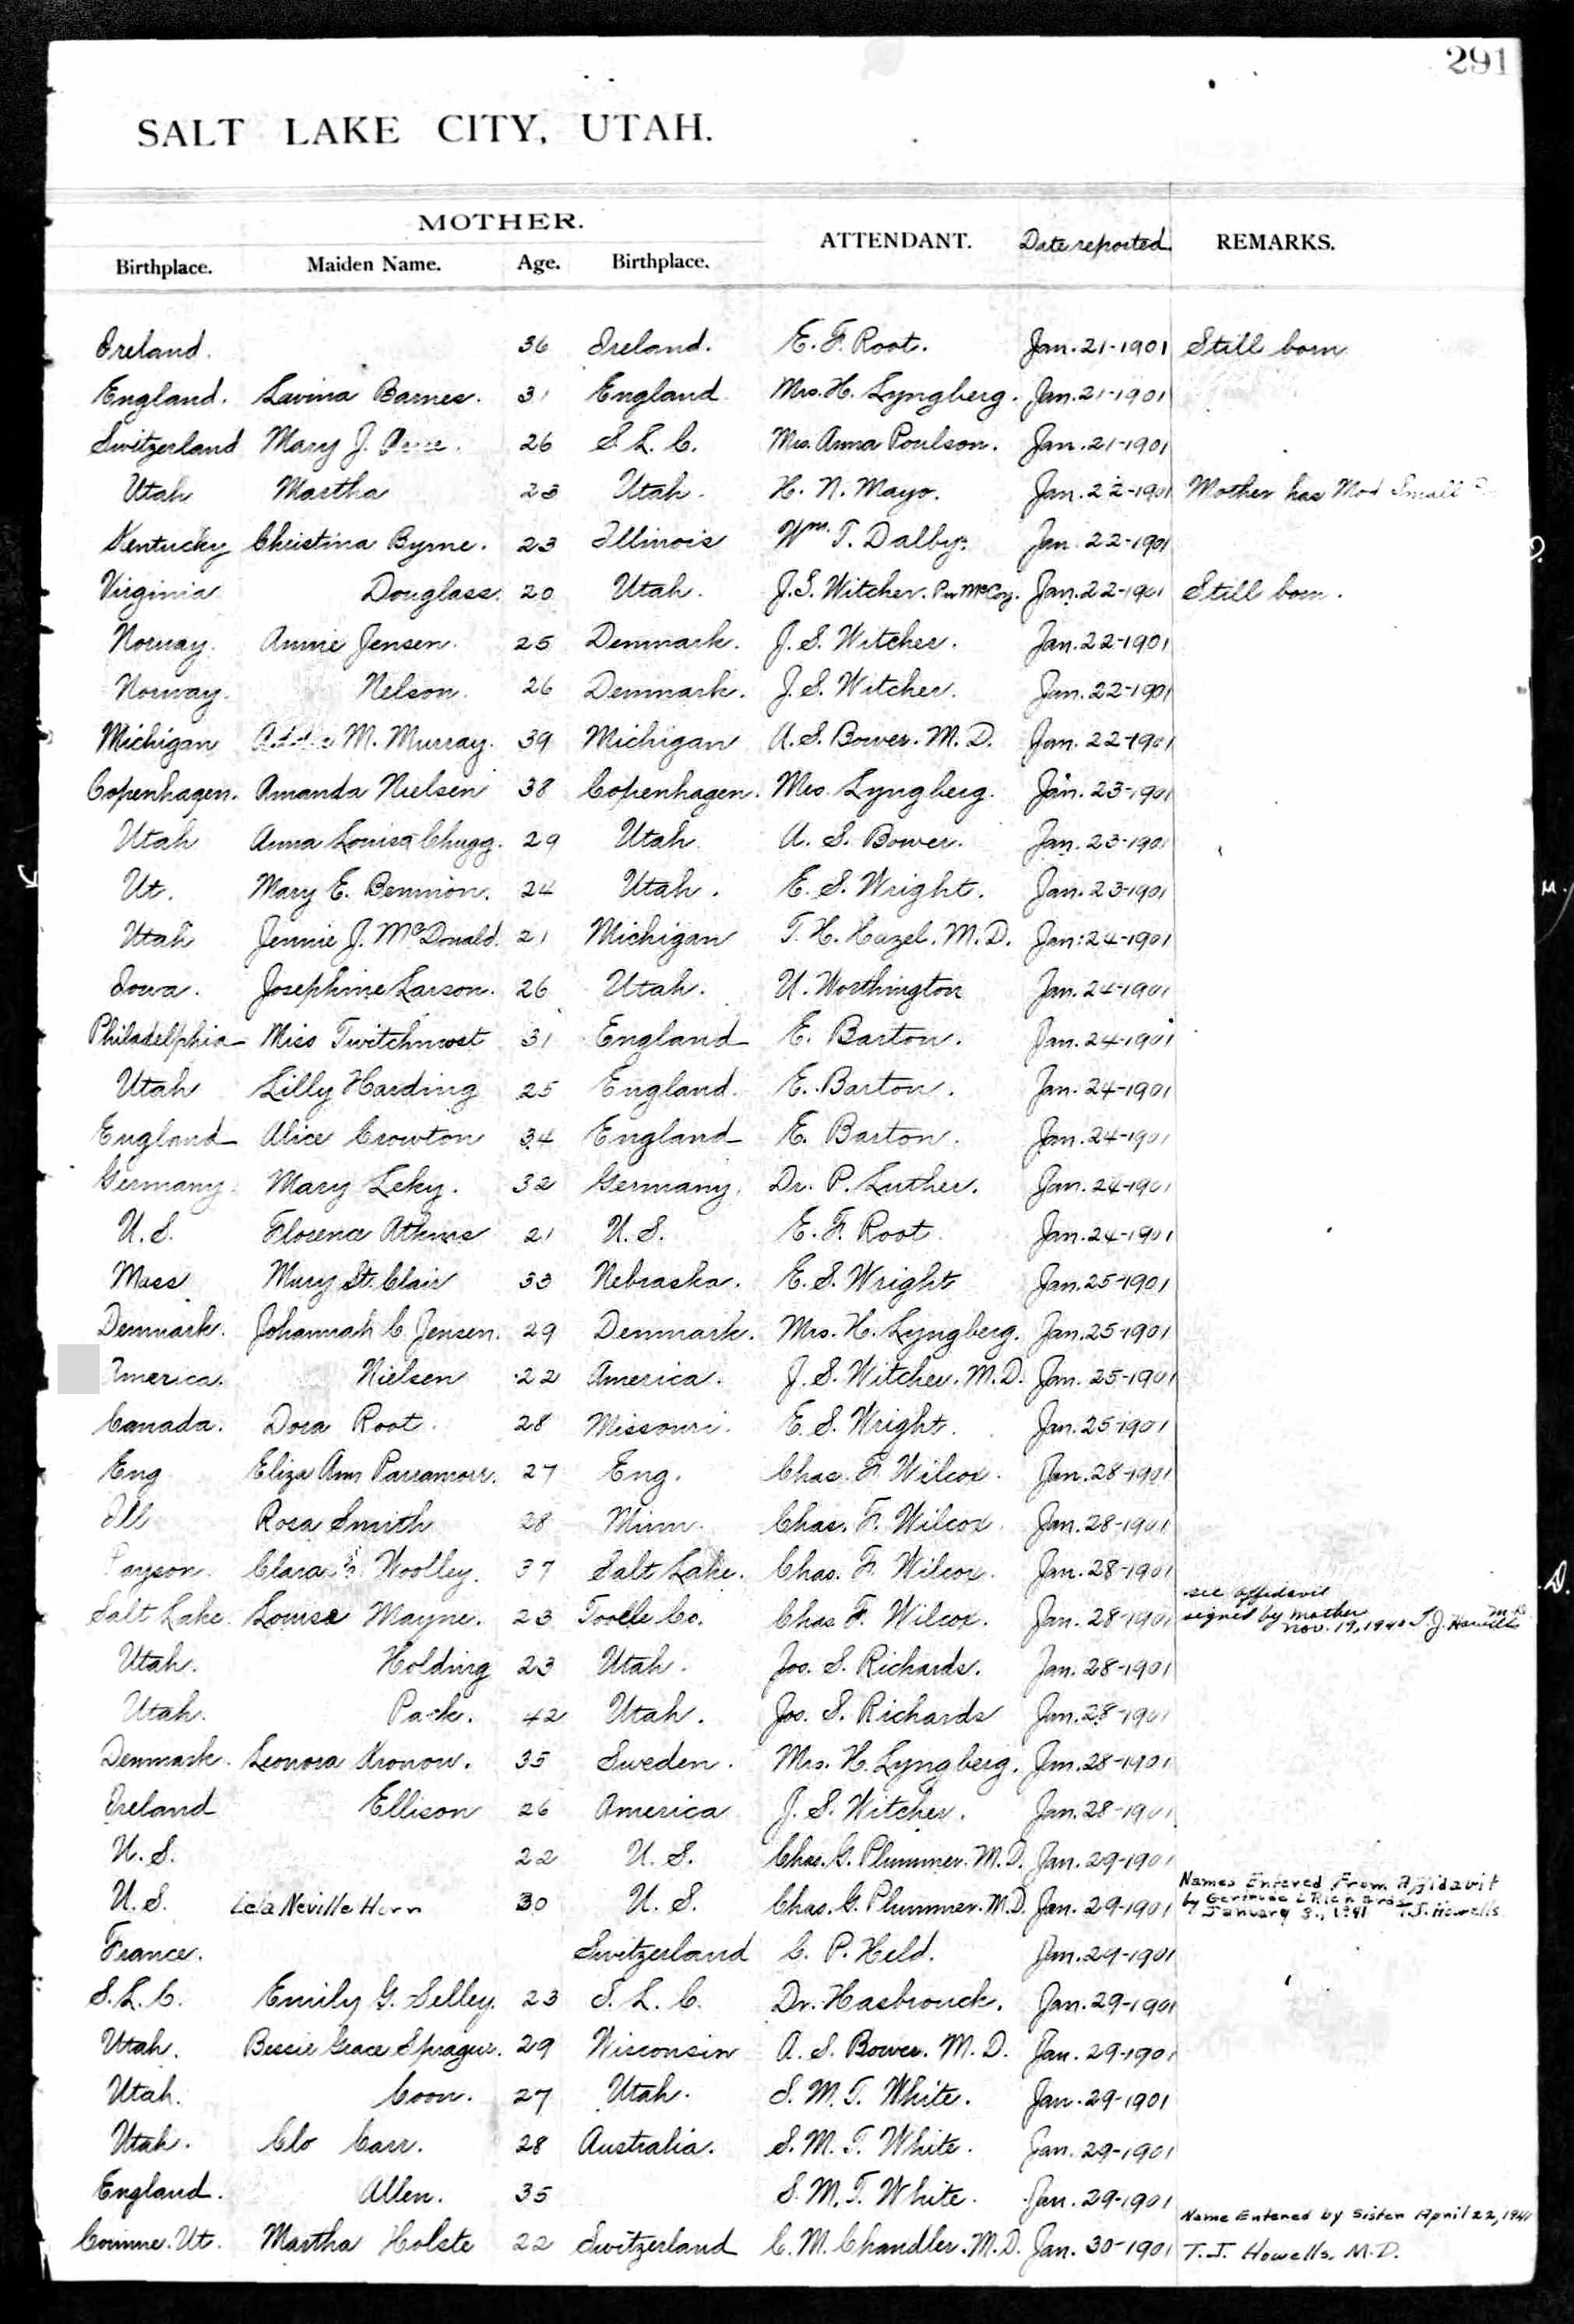 291
SALT LAKE CITY, UTAH.
MOTHER.
Birthplace. Maiden Name. Age. Birthplace. ATTENDANT. Date reported. REMARKS.
Ireland. 36 Ireland. E. F. Root. Jan. 21-1901 Still born
England. Lavina Barnes. 31 England Mrs. H. Lyngberg. Jan. 21-1901
Switzerland Mary J. 26 S. L. C. Mrs. Anna Poulson. Jan. 21-1901
Utah Martha 23 Utah. H. N. Mayo. Jan. 22-1901 Mother has Mod Small
Kentucky Christina Byrne. 23 Illinois Wm. T. Dalby. Jan. 22-1901
Virginia Douglass. 20 Utah. J. S. Witcher. Per McCoy. Jan. 22-1901 Still born.
Norway. Annie Jensen. 25 Denmark. J. S. Witcher. Jan. 22-1901
Norway. Nelson. 26 Denmark. J. S. Witcher. Jan. 22-1901
Michigan M. Murray. 39 Michigan A. S. Bower. M. D. Jan. 22-1901
Copenhagen. Amanda Nielsen 38 Copenhagen. Mrs. Lyngberg. Jan. 23-1901
Utah Anna Louisa Chugg. 29 Utah A. S. Bower. Jan. 23-1901
Ut. Mary E. Bennion. 24 Utah. E. S. Wright. Jan. 23-1901
Utah Jennie J. McDonald. 21 Michigan T. H. Hazel. M. D. Jan. 24-1901
Iowa. Josephine Larson. 26 Utah. U. Worthington Jan. 24-1901
Philadelphia Miss Twitchmost 31 England E. Barton. Jan. 24-1901
Utah Lilly Harding 25 England. E. Barton. Jan. 24-1901
England Alice Crowton 34 England E. Barton. Jan. 24-1901
Germany. Mary Leky. 32 Germany. Dr. P. Luther. Jan. 24-1901
U. S. Florence Atkins 21 U. S. E. F. Root. Jan. 24-1901
Mass Mary St. Clair 33 Nebraska. E. S. Wright Jan. 25-1901
Denmark. Johannah C. Jensen. 29 Denmark. Mrs. H. Lyngberg. Jan. 25-1901
America. Nielsen 22 America. J. S. Witcher. M. D. Jan. 25-1901
Canada. Dora Root. 28 Missouri. E. S. Wright. Jan. 25-1901
Eng Eliza Ann Parramore. 27 Eng. Chas. F. Wilcox. Jan. 28-1901
Ill Rosa Smith 28 Minn. Chas. F. Wilcox. Jan. 28-1901
Payson. Clara Woolley. 37 Salt Lake. Chas. F. Wilcox. Jan. 28-1901
Salt Lake. Louise Mayne. 23 Tooele Co. Chas. F. Wilcox. Jan. 28-1901 see affidavit signed by mother Nov. 19, 1940 T. J. Howells M.D.
Utah. Holding 23 Utah. Jos. S. Richards. Jan. 28-1901
Utah. Pack. 42 Utah. Jos. S. Richards Jan. 28-1901
Denmark. Leonora Kronow. 35 Sweden. Mrs. H. Lyngberg. Jan. 28-1901
Ireland Ellison 26 America J. S. Witcher. Jan. 28-1901
U. S. 22 U. S. Chas. G. Plummer. M. D. Jan. 29-1901
U. S. Lela Neville Horn 30 U. S. Chas. G. Plummer. M. D. Jan. 29-1901 Names Entered From Affidavit by Gertrude L Richards January 3, 1941 T.J. Howells
France. Switzerland C. P. Held. Jan. 29-1901
S. L. C. Emily G. Selley. 23 S. L. C. Dr. Hasbrouck. Jan. 29-1901
Utah. Bessie Grace Sprague. 29 Wisconsin A. S. Bower. M. D. Jan. 29-1901
Utah. Coon. 27 Utah. S. M. T. White. Jan. 29-1901
Utah. Clo Carr. 28 Australia. S. M. T. White. Jan. 29-1901
England. Allen. 35 S. M. T. White. Jan. 29-1901
Corinne. Ut. Martha Holste 22 Switzerland C. M. Chandler. M. D. Jan. 30-1901 Name Entered by Sister April 22, 1941 T. J. Howells, M.D.